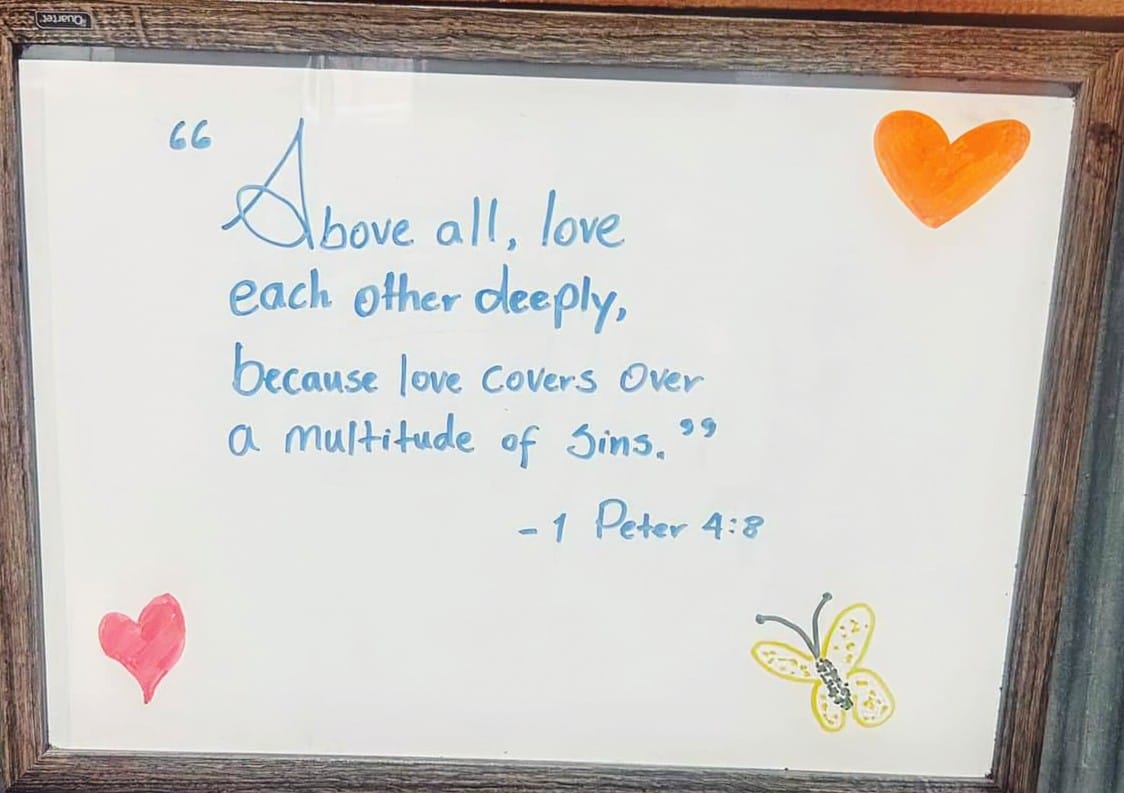 Quartet
“Above all, love
each other deeply,
because love covers over
a multitude of sins.”
- 1 Peter 4:8